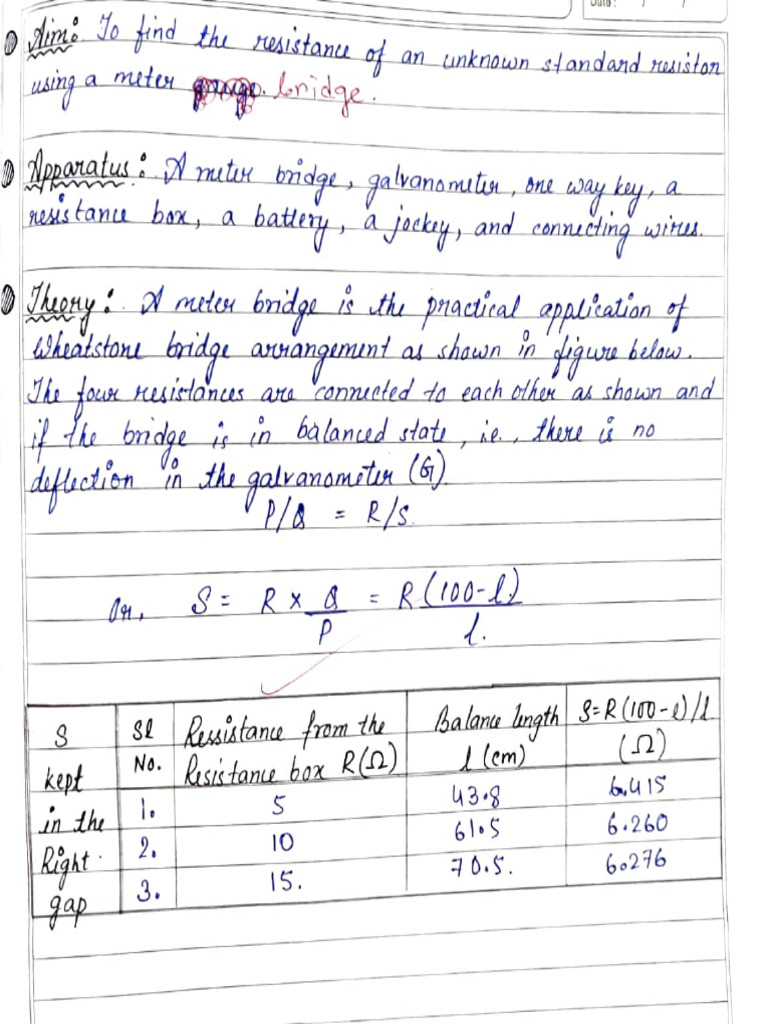 Date: / /
Aim: To find the resistance of an unknown standard resistor
using a meter bridge.
Apparatus: A meter bridge, galvanometer, one way key, a
resistance box, a battery, a jockey, and connecting wires.
Theory: A meter bridge is the practical application of
Wheatstone bridge arrangement as shown in figure below.
The four resistances are connected to each other as shown and
if the bridge is in balanced state, i.e., there is no
deflection in the galvanometer (G)
P/Q = R/S.
Or, S = R × Q/P = R(100-l)/l.
S kept in the Right gap | Sl No. | Ressistance from the Resistance box R(Ω) | Balance length l (cm) | S=R(100-l)/l (Ω)
1. | 5 | 43.8 | 6.415
2. | 10 | 61.5 | 6.260
3. | 15. | 70.5. | 6.276